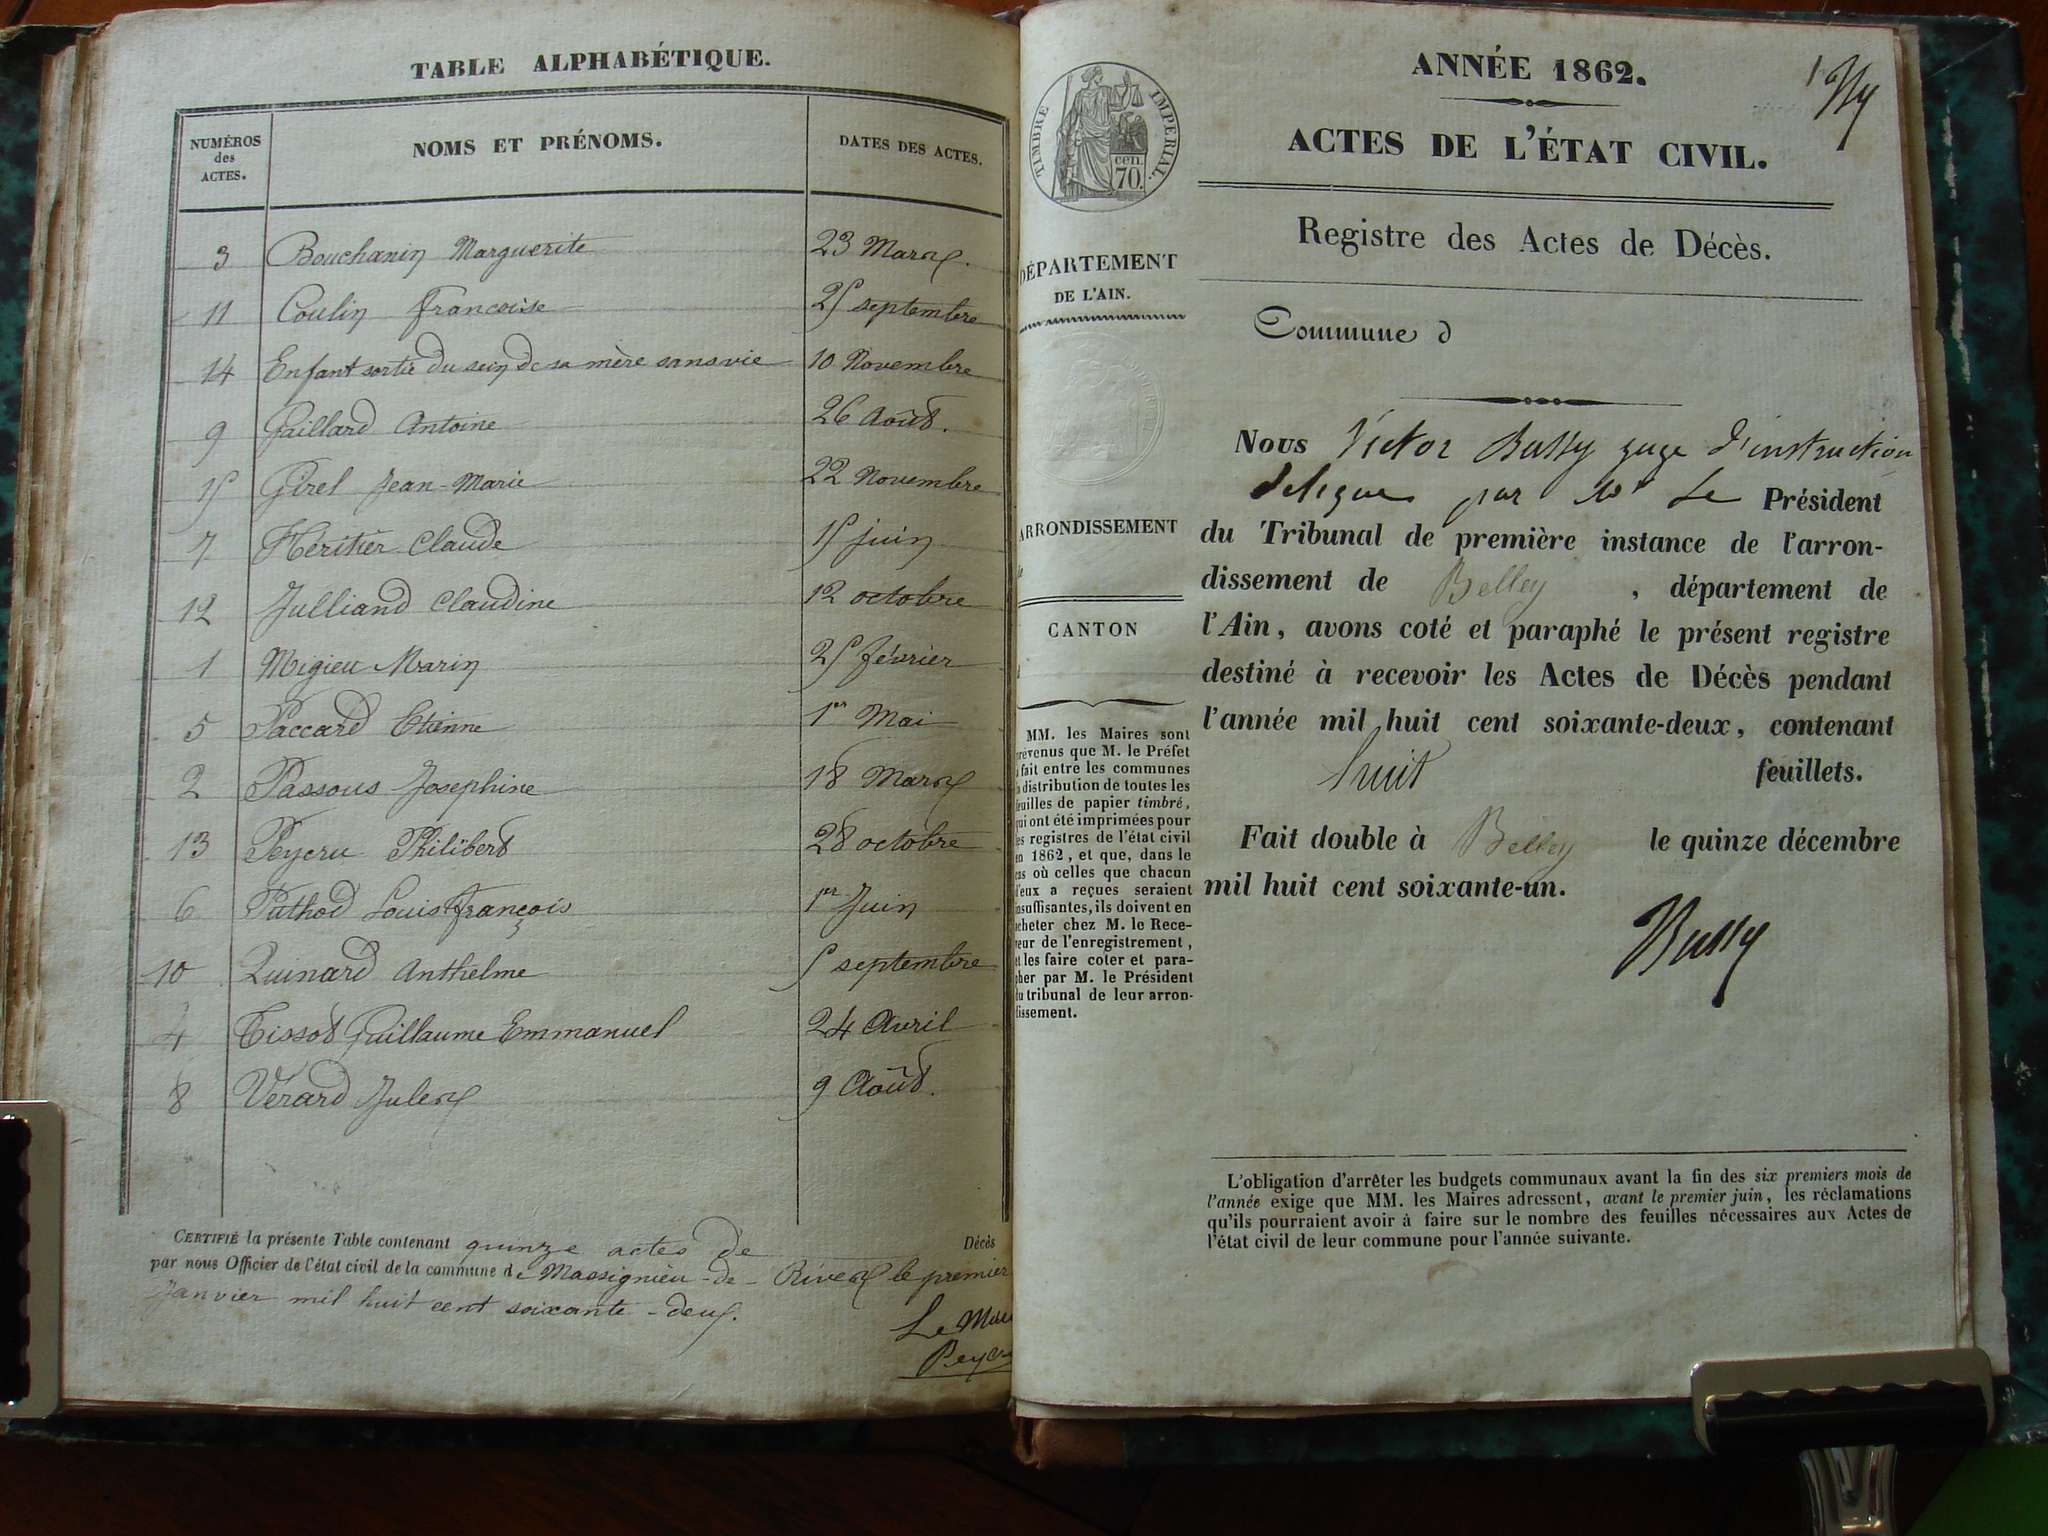 TABLE ALPHABÉTIQUE.
NUMÉROS des ACTES. NOMS ET PRÉNOMS. DATES DES ACTES.
3 Bouchanin Marguerite 23 Mars.
11 Coulin francoise 25 septembre
14 Enfant sortie du sein de sa mère sans vie 10 Novembre
9 Gaillard Antoine 26 Août.
15 Girel Jean-Marie 22 Novembre
7 Héritier Claude 15 juin
12 Julliand Claudine 12 octobre
1 Migieu Marin 25 février
5 Paccard Etienne 1er Mai
2 Passous Josephine 18 Mars
13 Peycru Philibert 28 octobre
6 Puthod Louis françois 1er Juin
10 Quinard Anthelme 5 septembre
4 Tissot Guillaume Emmanuel 24 Avril
8 Verard Jules 9 Août.
CERTIFIÉ la présente Table contenant quinze actes de Décès
par nous Officier de l'état civil de la commune de Massignieu-de-Rives le premier
Janvier mil huit cent soixante-deux.
Le Maire
Peycru
ANNÉE 1862.
1
TIMBRE IMPÉRIAL.
cen.
70.
ACTES DE L'ÉTAT CIVIL.
Registre des Actes de Décès.
DÉPARTEMENT
DE L'AIN.
Commune d
Nous Victor Bussy juge d'instruction
délégué par Mr Le Président
du Tribunal de première instance de l'arron-
dissement de Belley, département de
l'Ain, avons coté et paraphé le présent registre
destiné à recevoir les Actes de Décès pendant
l'année mil huit cent soixante-deux, contenant
huit feuillets.
Fait double à Belley le quinze décembre
mil huit cent soixante-un.
Bussy
ARRONDISSEMENT
CANTON
MM. les Maires sont
prévenus que M. le Préfet
a fait entre les communes
la distribution de toutes les
feuilles de papier timbré,
qui ont été imprimées pour
les registres de l'état civil
en 1862, et que, dans le
cas où celles que chacun
d'eux a reçues seraient
insuffisantes, ils doivent en
acheter chez M. le Rece-
veur de l'enregistrement,
et les faire coter et para-
pher par M. le Président
du tribunal de leur arron-
dissement.
L'obligation d'arrêter les budgets communaux avant la fin des six premiers mois de
l'année exige que MM. les Maires adressent, avant le premier juin, les réclamations
qu'ils pourraient avoir à faire sur le nombre des feuilles nécessaires aux Actes de
l'état civil de leur commune pour l'année suivante.